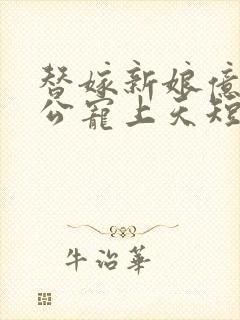 替嫁新娘億
公寵上天短
牛治華